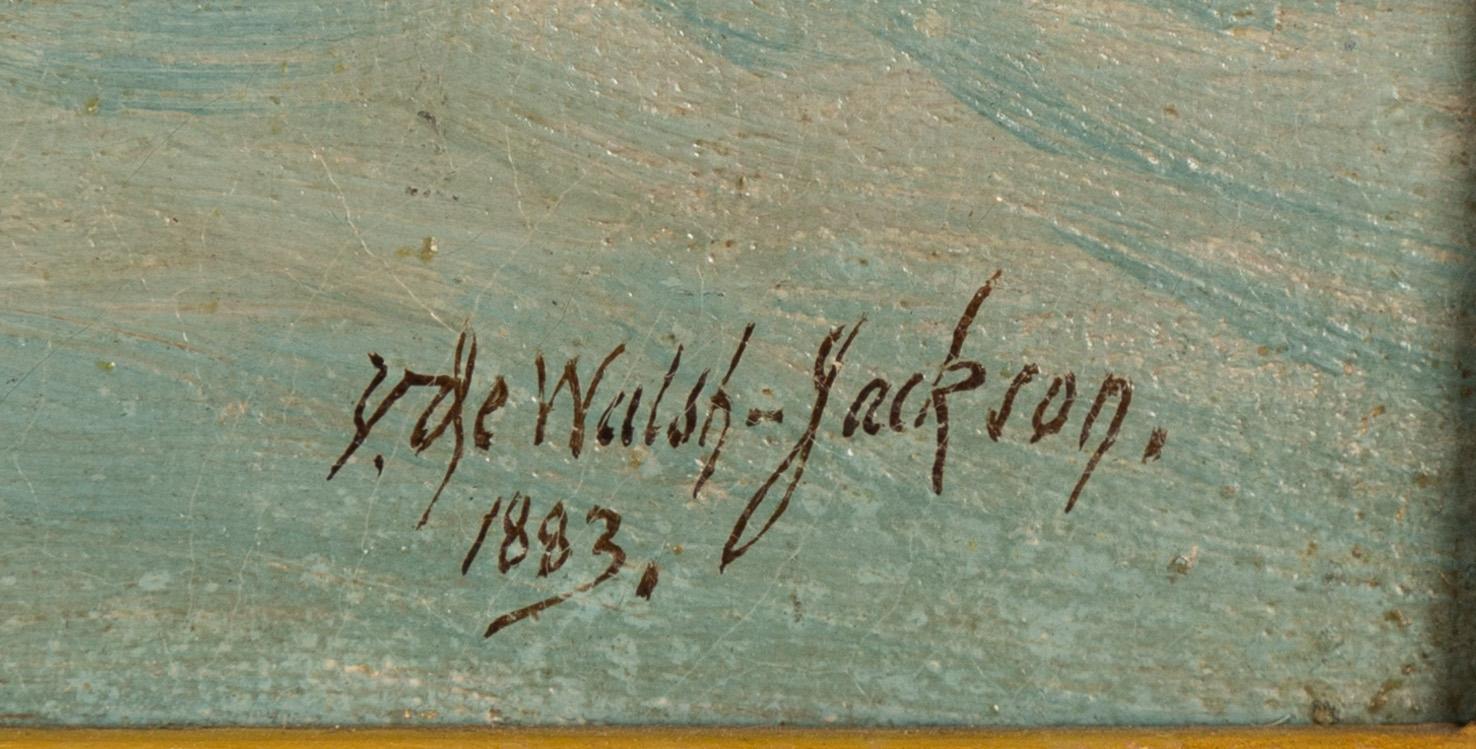 V. de Walsh-Jackson.
1883.